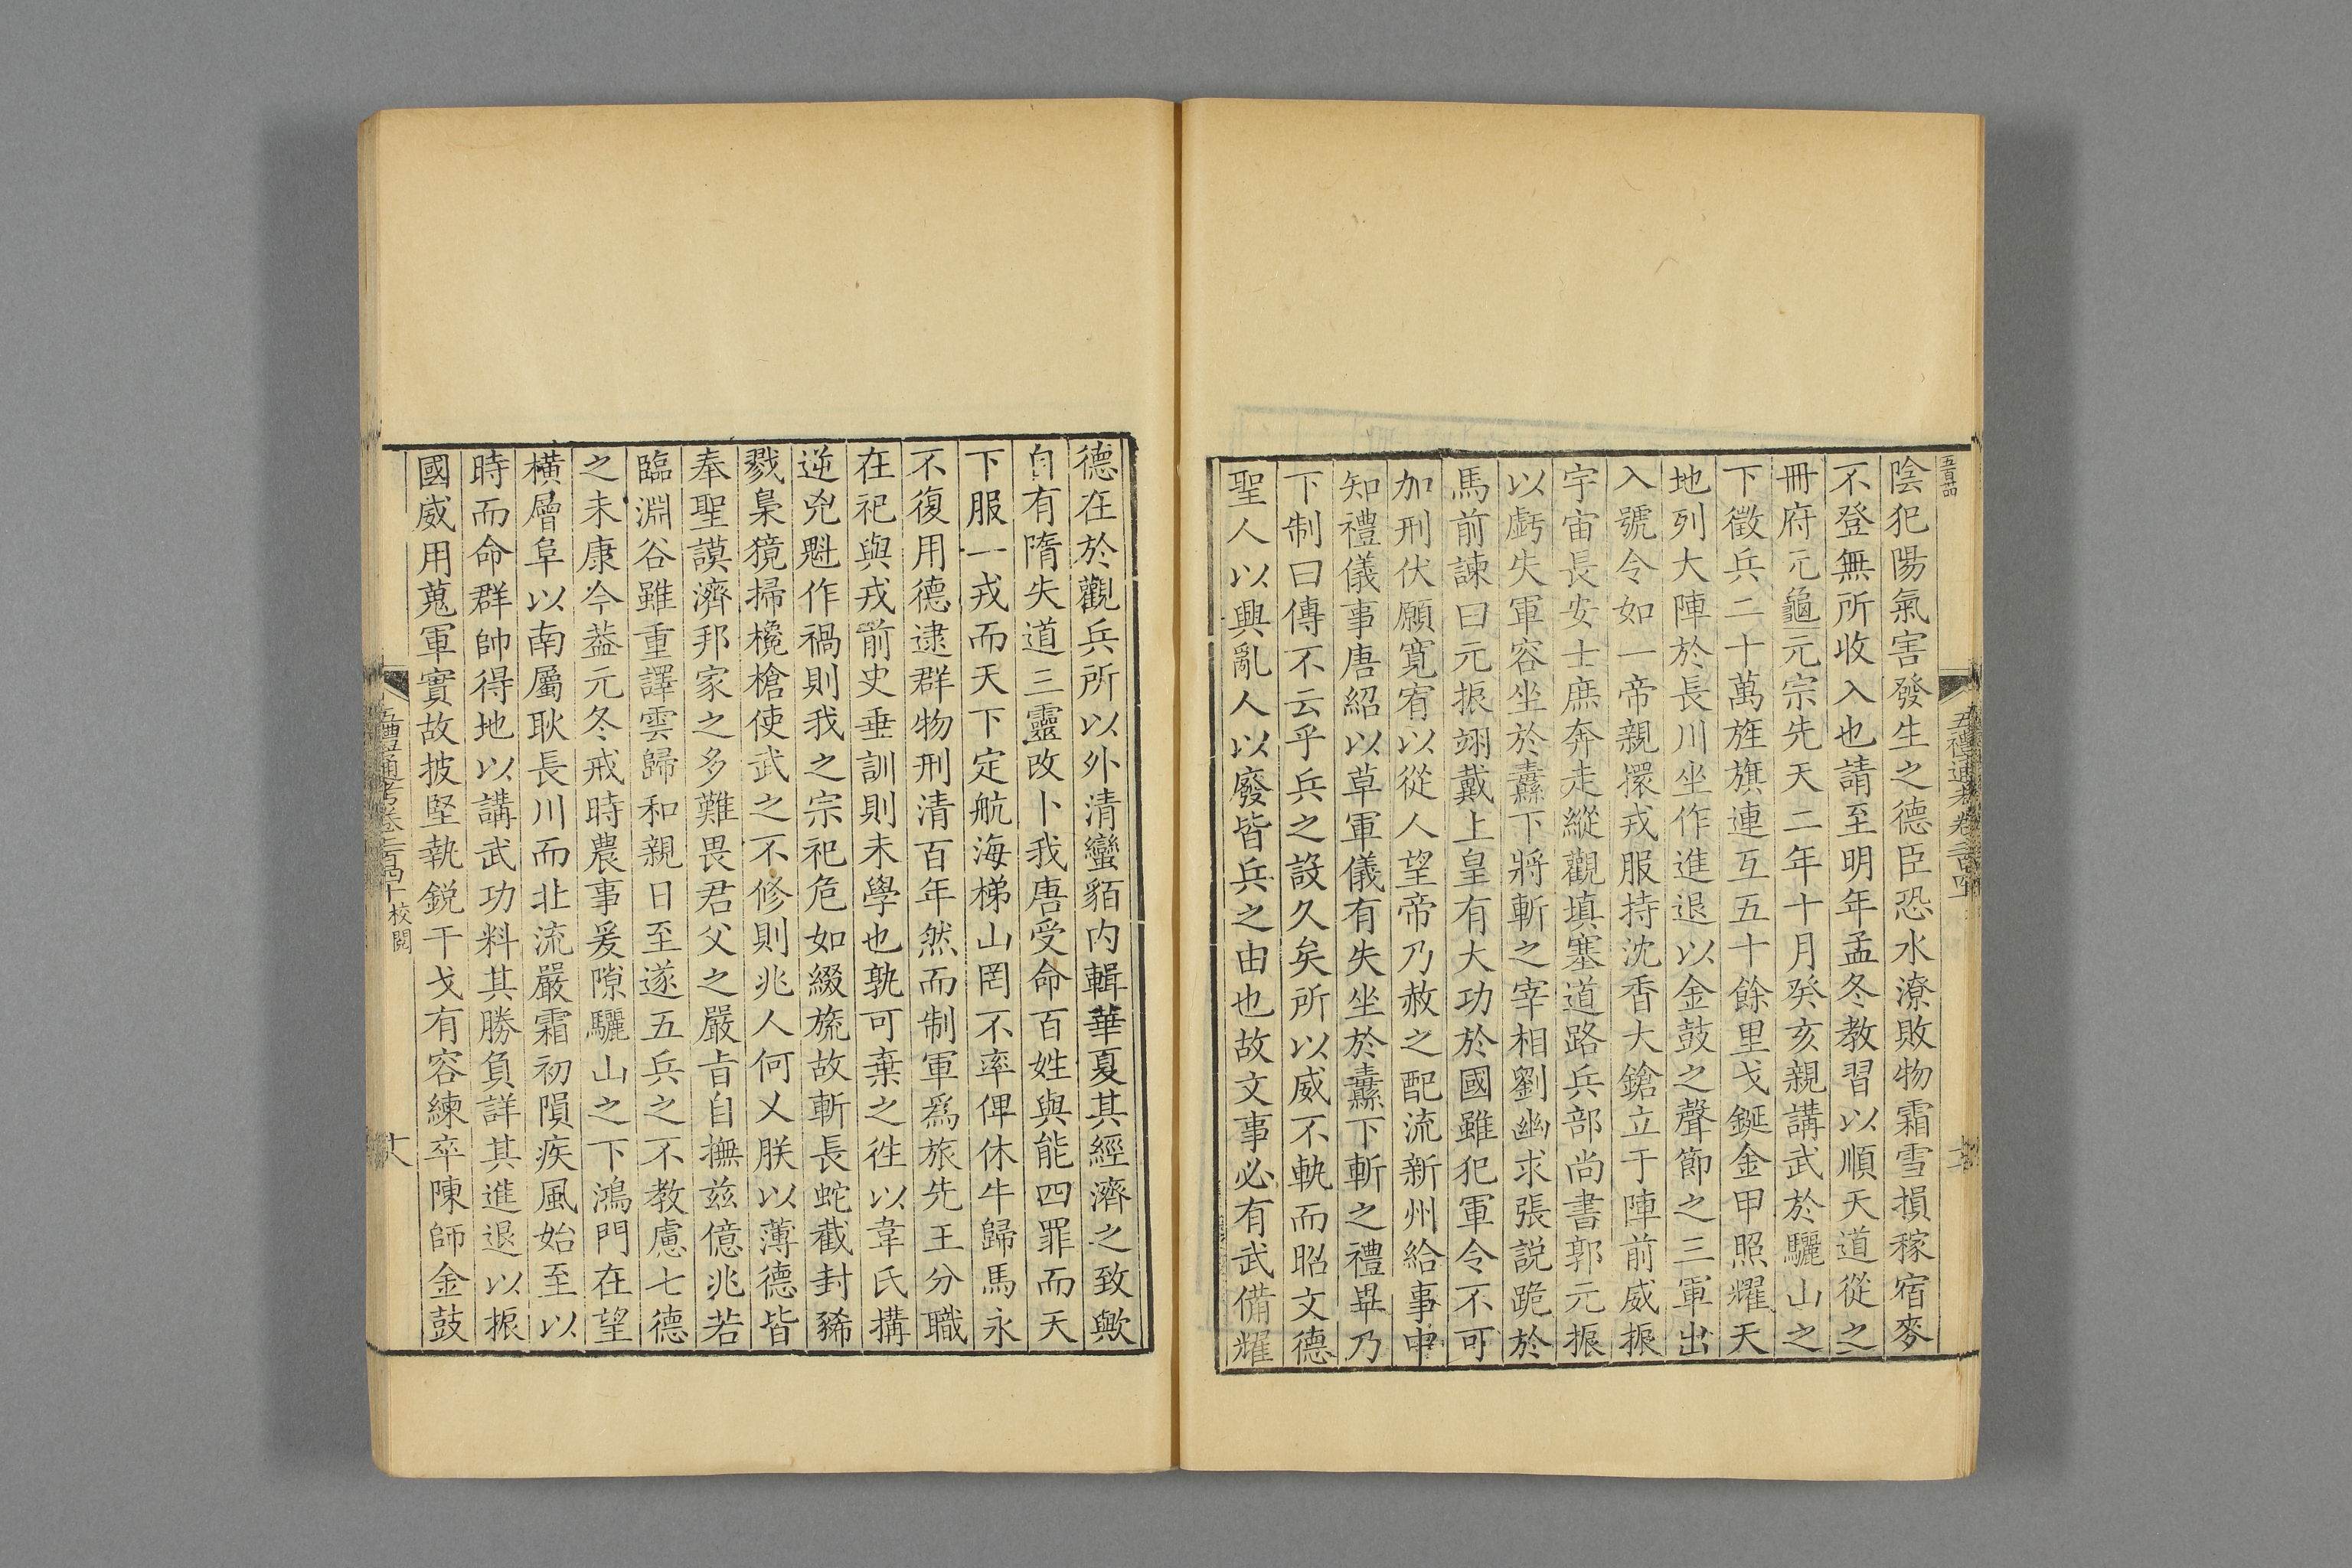 陰犯陽氣害發生之德臣恐水潦敗物霜雪損稼宿麥
不登無所收入也請至明年孟冬教習以順天道從之
冊府元龜元宗先天二年十月癸亥親講武於驪山之
下徵兵二十萬旌旗連亙五十餘里戈鋋金甲照耀天
地列大陣於長川坐作進退以金鼓之聲節之三軍出
入號令如一帝親擐戎服持沈香大鎗立于陣前威振
宇宙長安士庶奔走縱觀填塞道路兵部尚書郭元振
以虧失軍容坐於纛下將斬之宰相劉幽求張説跪於
馬前諫曰元振翊戴上皇有大功於國雖犯軍令不可
加刑伏願寬宥以從人望帝乃赦之配流新州給事中
知禮儀事唐紹以草軍儀有失坐於纛下斬之禮畢乃
下制曰傳不云乎兵之設久矣所以威不軌而昭文德
聖人以興亂人以廢皆兵之由也故文事必有武備耀
德在於觀兵所以外清蠻貊内輯華夏其經濟之致歟
自有隋失道三靈改卜我唐受命百姓與能四罪而天
下服一戎而天下定航海梯山罔不率俾休牛歸馬永
不復用德逮群物刑清百年然而制軍爲旅先王分職
在祀與戎前史垂訓則未學也孰可棄之徃以韋氏搆
逆兇魁作禍則我之宗祀危如綴旒故斬長蛇截封豨
戮梟獍掃欃槍使武之不修則兆人何乂朕以薄德皆
奉聖謨濟邦家之多難畏君父之嚴旨自撫兹億兆若
臨淵谷雖重譯雲歸和親日至遂五兵之不教慮七德
之未康今葢元冬戒時農事爰隙驪山之下鴻門在望
橫層阜以南屬耿長川而北流嚴霜初隕疾風始至以
時而命群帥得地以講武功料其勝負詳其進退以振
國威用蒐軍實故披堅執鋭干戈有容練卒陳師金鼓
五禮通考卷二百四十
校閲
十八